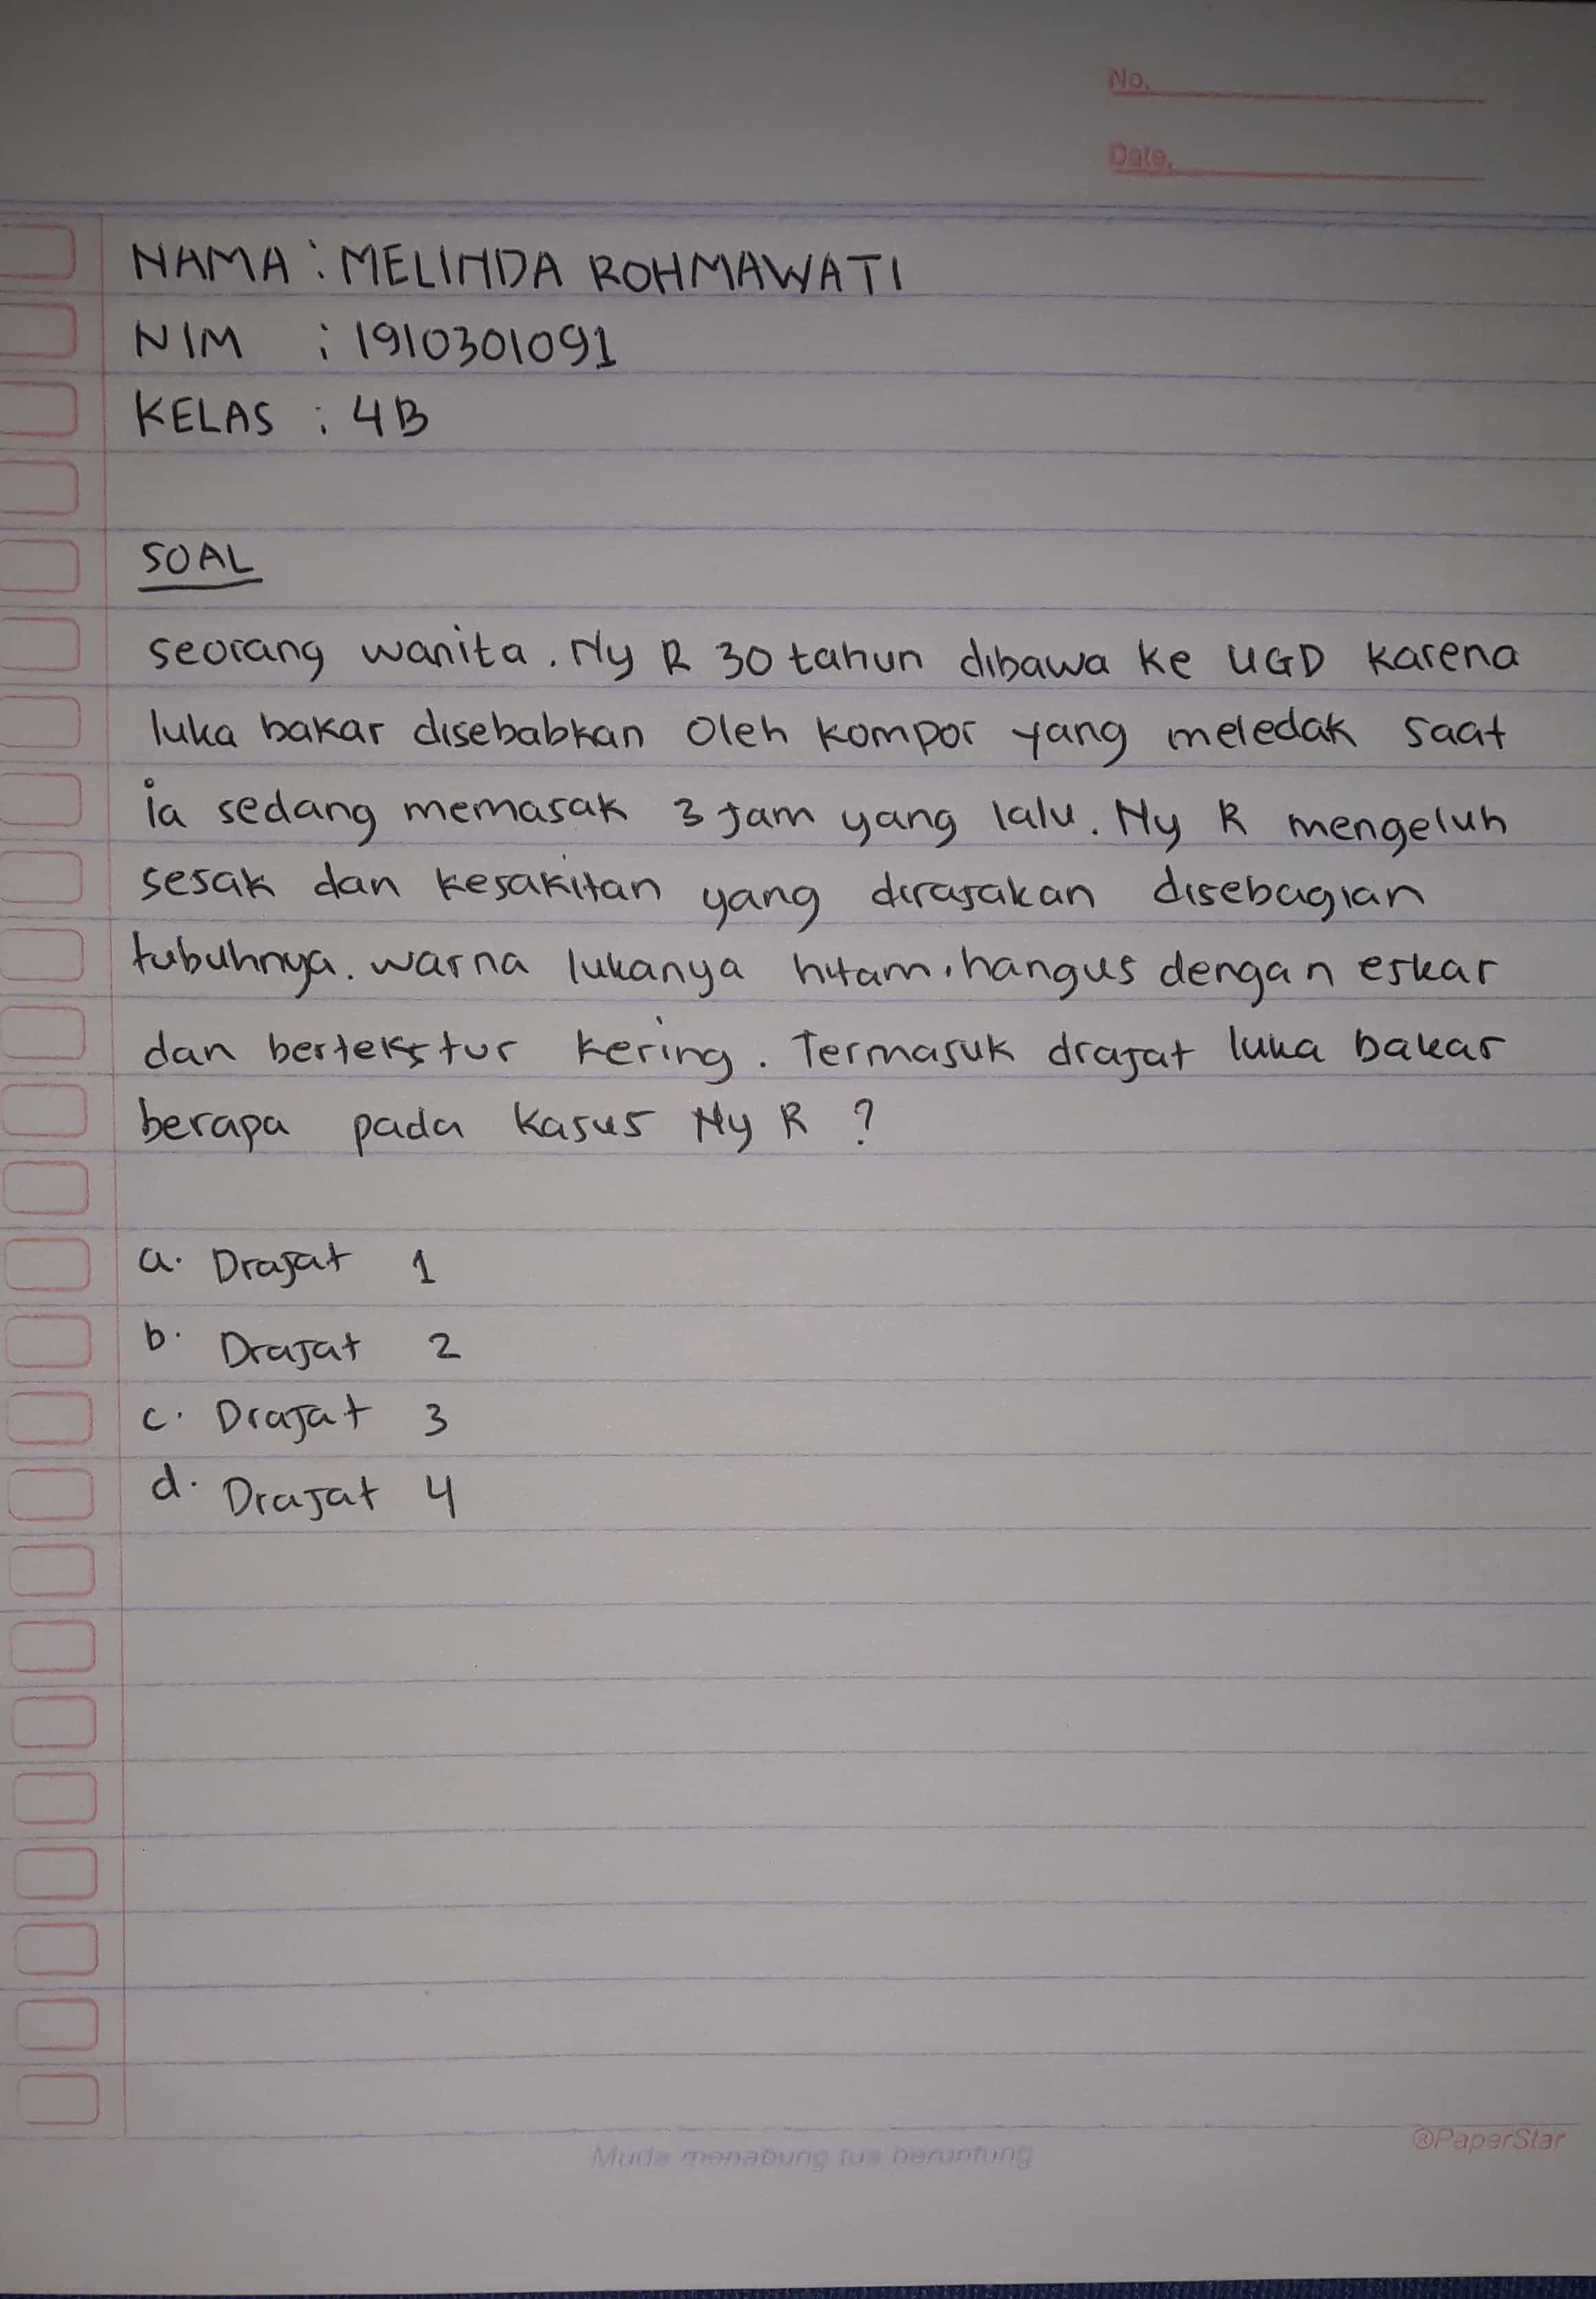 No.
Date.
NAMA : MELINDA ROHMAWATI
NIM : 1910301091
KELAS : 4B
SOAL
seorang wanita. Ny R 30 tahun dibawa ke UGD karena
luka bakar disebabkan oleh kompor yang meledak saat
ia sedang memasak 3 jam yang lalu. Ny R mengeluh
sesak dan kesakitan yang dirasakan disebagian
tubuhnya. warna lukanya hitam, hangus dengan eskar
dan bertekstur kering. Termasuk drajat luka bakar
berapa pada kasus Ny R ?
a. Drajat 1
b. Drajat 2
c. Drajat 3
d. Drajat 4
Muda menabung tua beruntung
®PaperStar